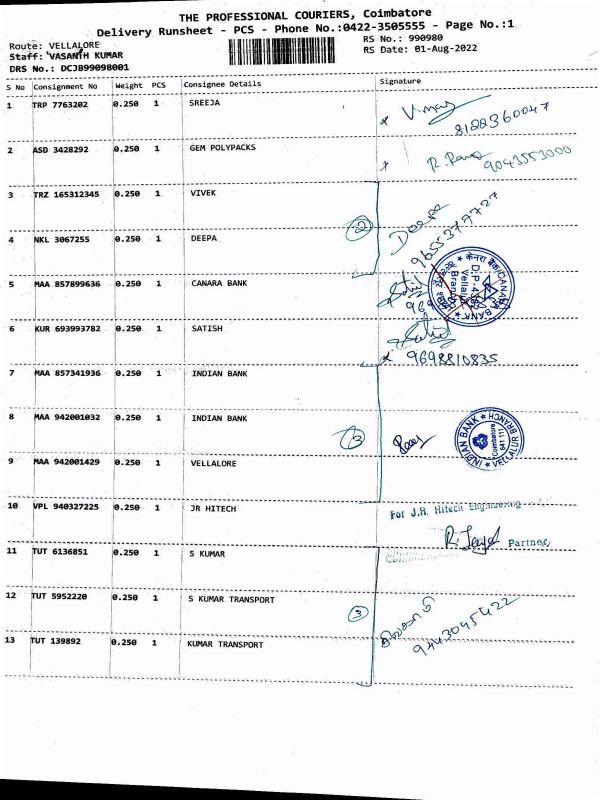 THE PROFESSIONAL COURIERS, Coimbatore
Delivery Runsheet - PCS - Phone No.:0422-3505555 - Page No.:1
Route: VELLALORE
RS No.: 990980
Staff: VASANTH KUMAR
RS Date: 01-Aug-2022
DRS No.: DCJB99098001
S No Consignment No Weight PCS Consignee Details Signature
1 TRP 7763202 0.250 1 SREEJA
8122360047
2 ASD 3428292 0.250 1 GEM POLYPACKS
9043553000
3 TRZ 165312345 0.250 1 VIVEK
2
4 NKL 3067255 0.250 1 DEEPA Deepa
9655379727
5 MAA 857899636 0.250 1 CANARA BANK
CANARA BANK
6 KUR 693993782 0.250 1 SATISH
9698810835
7 MAA 857341936 0.250 1 INDIAN BANK
8 MAA 942001032 0.250 1 INDIAN BANK
3
INDIAN BANK VELLALUR BRANCH Coimbatore 641 111
9 MAA 942001429 0.250 1 VELLALORE
10 VPL 940327225 0.250 1 JR HITECH
For J.R. Hitech Engineering
Partner
11 TUT 6136851 0.250 1 S KUMAR
12 TUT 5952220 0.250 1 S KUMAR TRANSPORT
3
9443045422
13 TUT 139892 0.250 1 KUMAR TRANSPORT